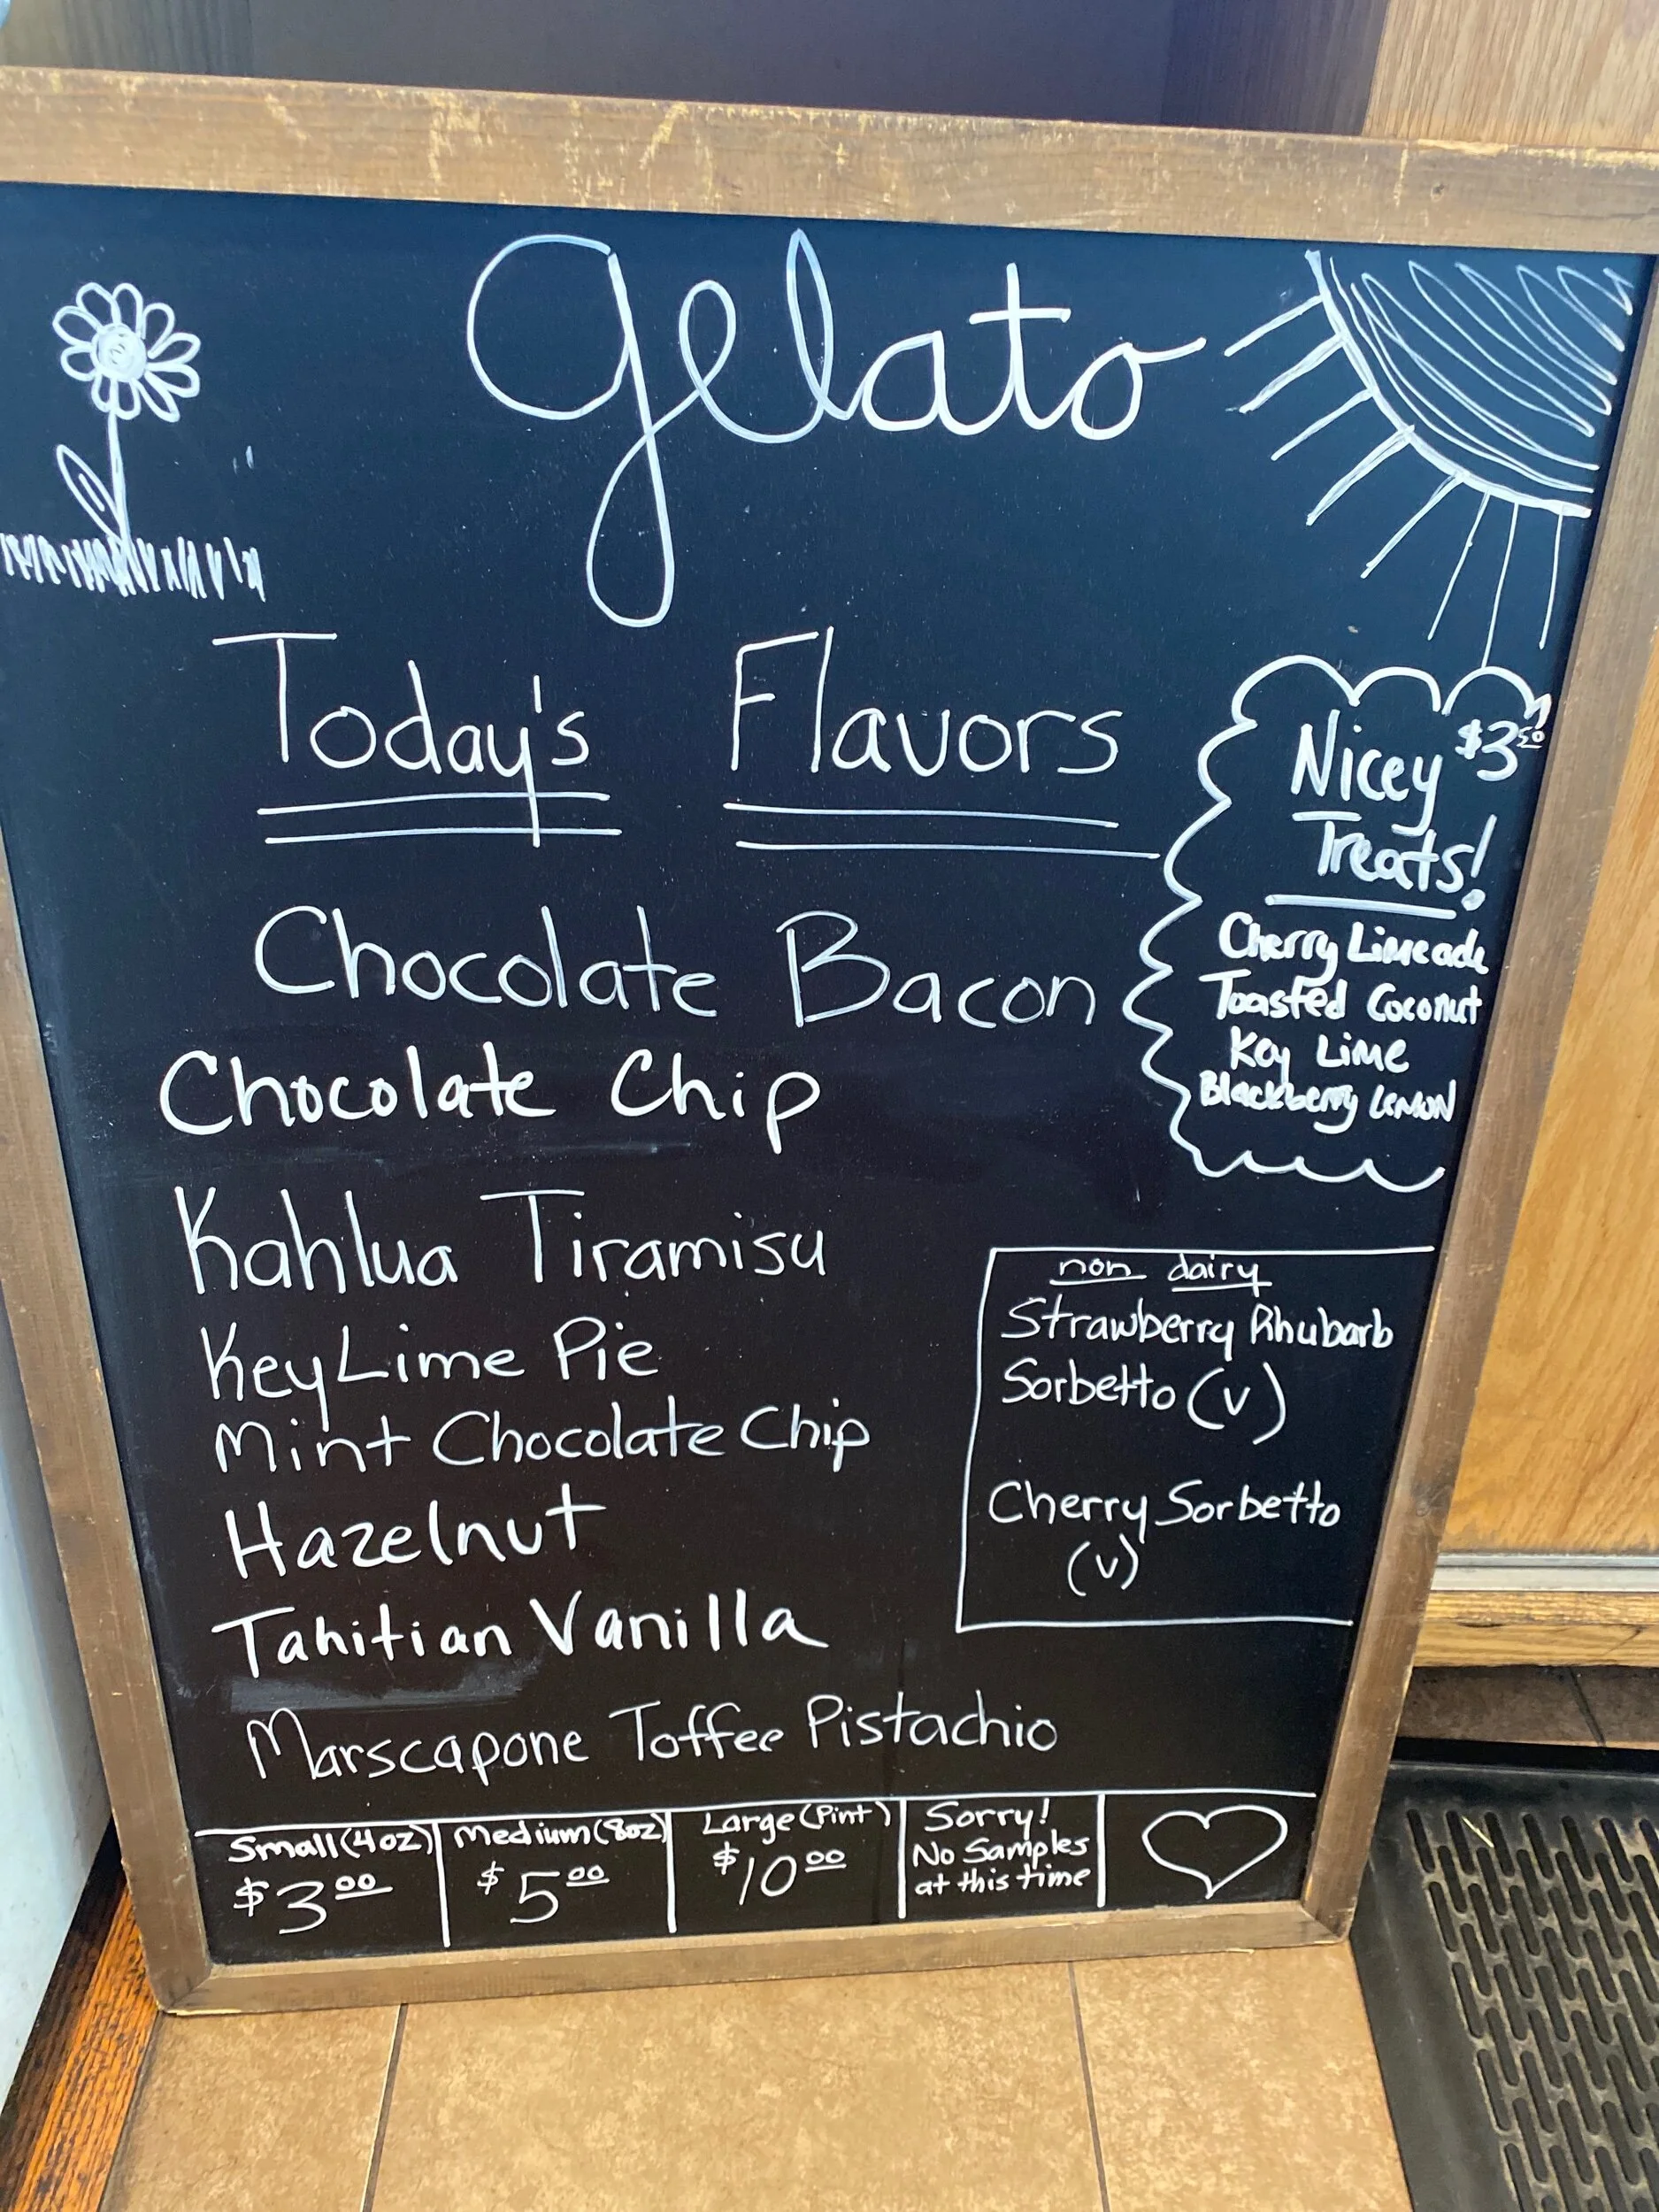 Gelato
Today's Flavors
Chocolate Bacon
Chocolate Chip
Kahlua Tiramisu
Key Lime Pie
Mint Chocolate Chip
Hazelnut
Tahitian Vanilla
Marscapone Toffee Pistachio
Nicey $3.50
Treats!
Cherry Limeade
Toasted Coconut
Key Lime
Blackberry Lemon
non dairy
Strawberry Rhubarb
Sorbetto (v)
Cherry Sorbetto
(v)
Small (4oz)
$3.00
Medium (8oz)
$5.00
Large (Pint)
$10.00
Sorry!
No Samples
at this time